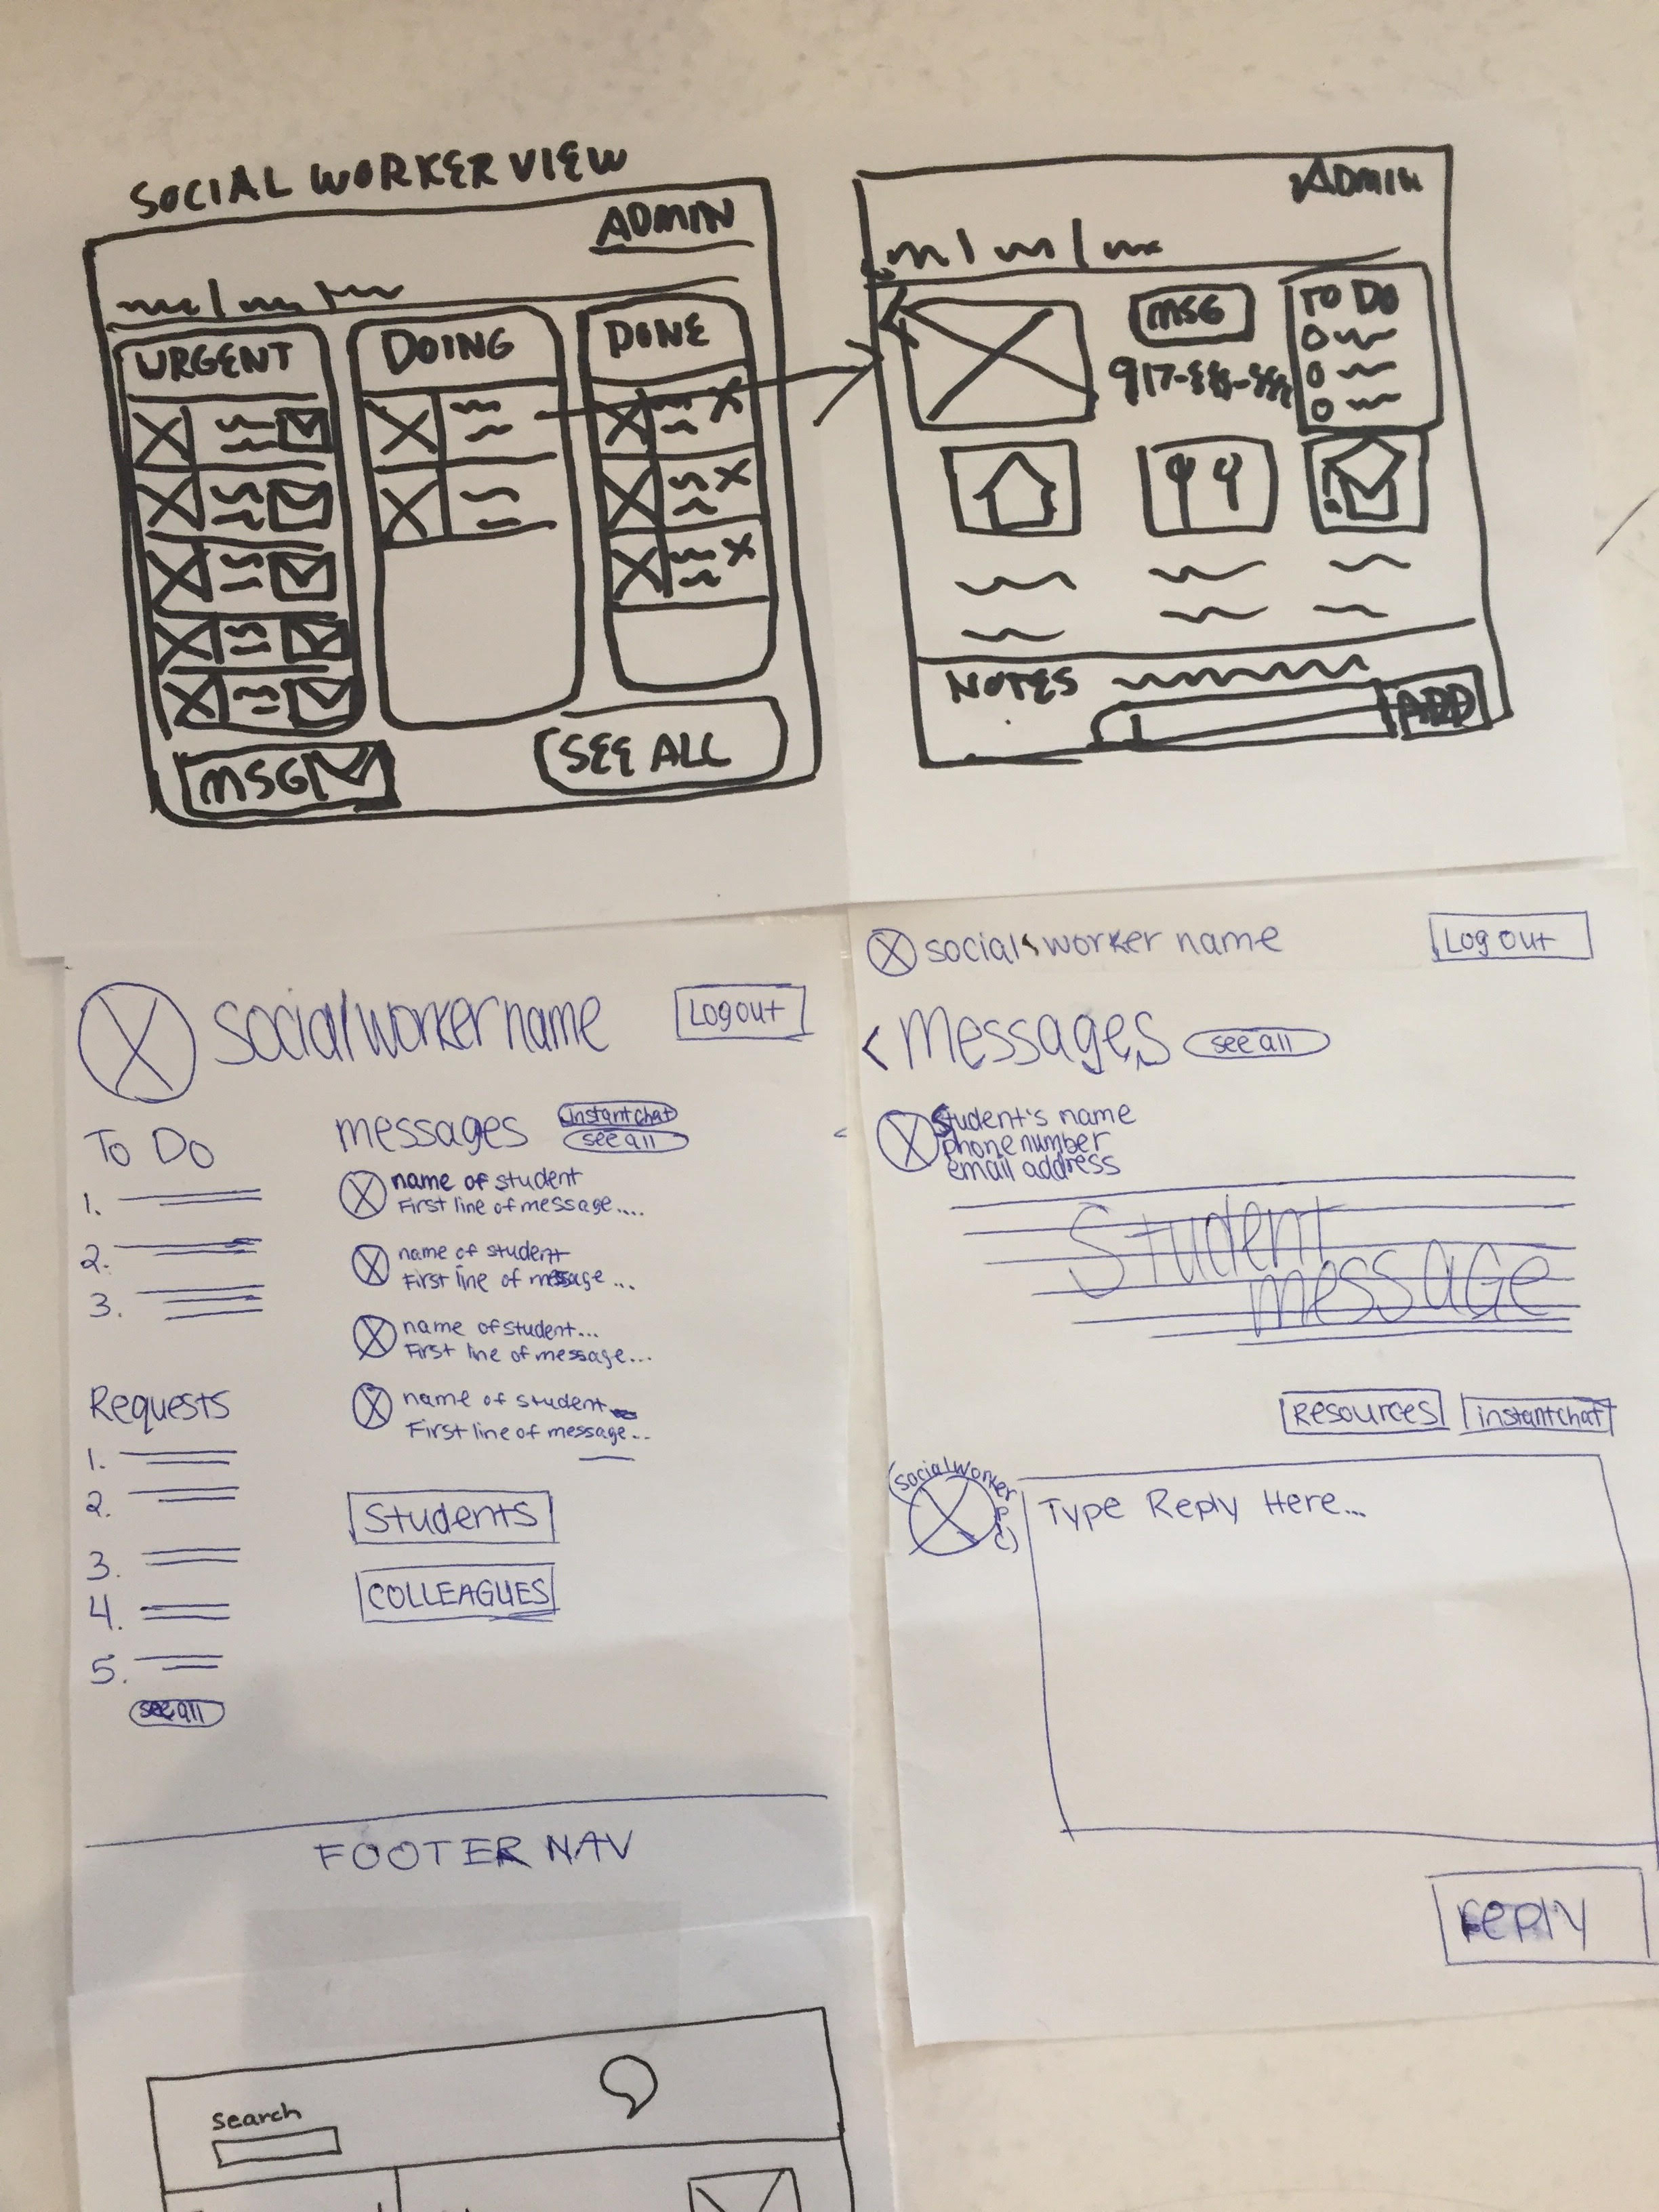 SOCIAL WORKER VIEW
ADMIN
URGENT
DOING
DONE
MSG
SEE ALL
ADMIN
MSG
917-
TO DO
NOTES
ADD
social worker name
Logout
To Do
1.
2.
3.
messages
instant chat
see all
name of student
First line of message....
name of student
First line of message...
name of student...
First line of message...
name of student
First line of message...
Requests
1.
2.
3.
4.
5.
see all
Students
COLLEAGUES
FOOTER NAV
social worker name
Log out
< Messages
see all
Student's name
phone number
email address
Student
message
Resources
instant chat
(social worker
pic)
Type Reply Here...
reply
Search